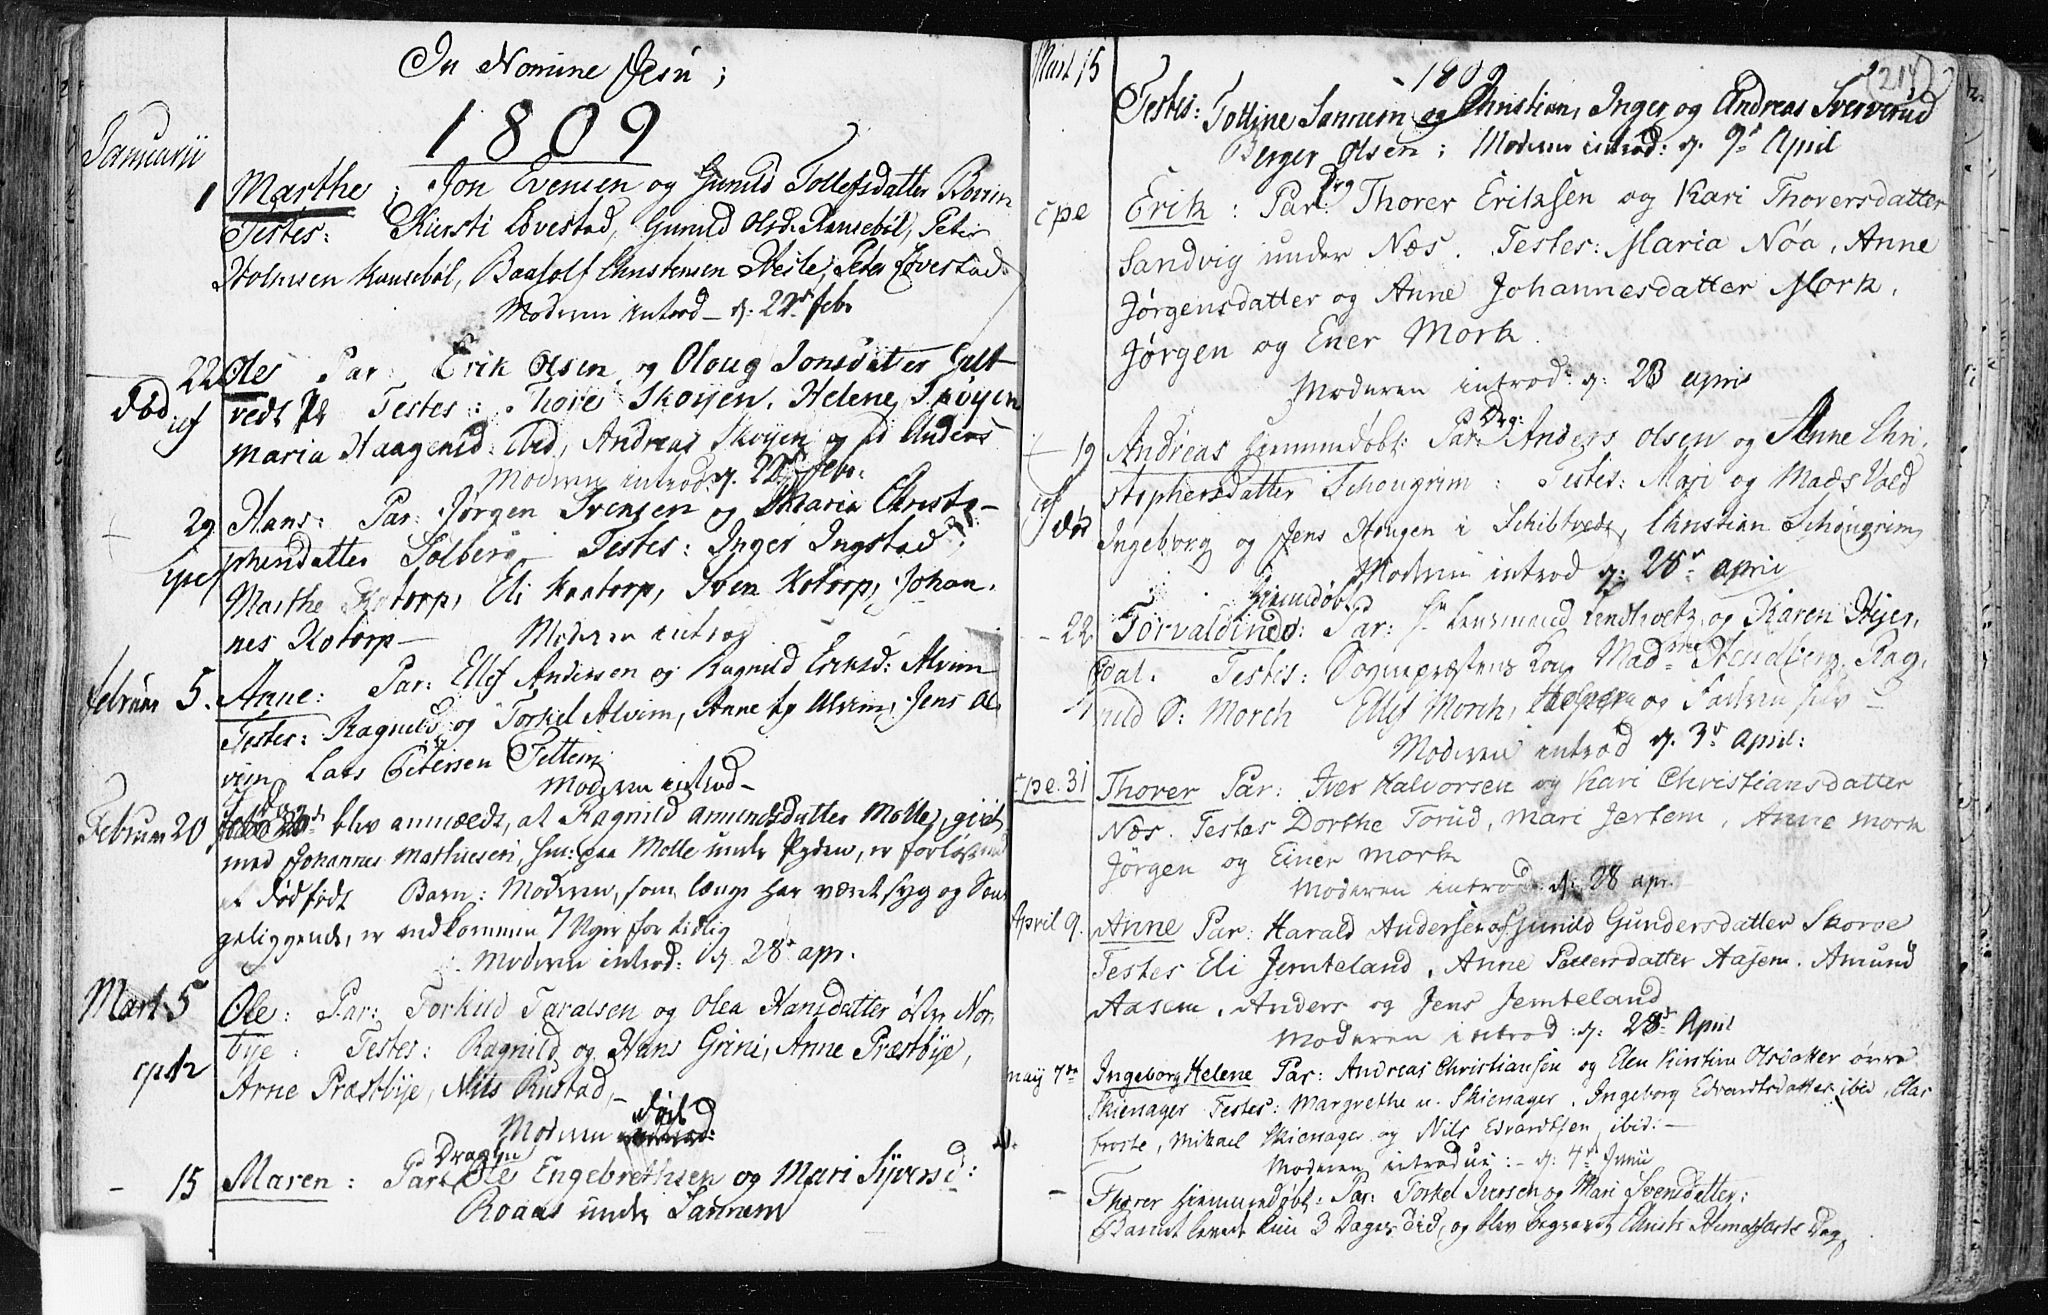 In Nomine Jesu;
1809
Januarii
1 Marthe; Jon Evensen og Gunild Tollefsdatter
Testes: Kiersti Løvestad, Gunild Olsd. Kansebøl, Peder
Holmsen Kansebøl, Christensen Peder Løvestad
Moderen introd - d. 22 febr
22 Ole Par: Erik Olsen og Oloug Jonsdatter
død vedt Testes: Thore Skøyen, Helene Skøyen
Maria Haagensd: ibid, Andreas Skøyen og Anders
Moderen introd: d. 22 febr:
29 Hans: Par: Jørgen Svensen og Maria Christo-
phersdatter Solberg - Testes: Inger Ingstad,
Marthe Kotorp, Eli Kaatorp, Sven Kotorp, Johan-
nes Kotorp - Moderen introd
februar 5. Anne: Par: Ellef Andersen og Ragnild Eriksd: Alvim
Testes: Ragnild og Torkel Alvim, Anne Alvim, Jens Al-
vim Lars Petersen Peltem
Moderen introd -
Februar 20 blev anmældt, at Ragnild Amundsdatter Molle, givt
med Johannes Mathiesen, paa Molle under Ryden, er forløset med
et dødfødt Barn: Moderen, som længe har været syg og Sen-
geliggende, er nedkommen 7 Uger for tidlig
Moderen introd: d. 28 apr.
Mart 5 Ole: Par: Torkild Taralsen og Olea Hansdatter Nor-
bye: Testes: Ragnild og Hans Grini, Anne Præstbye,
Arne Præstbye, Nils Rustad, -
Moderen død
- 15 Maren: Par: Dragon Ole Engebrethsen og Mari Siversd:
Roaas under Sannem
Mart 15 1809 214
Testes: Tolline Sannem og Christian, Inger og Andreas Sververud
Berger Olsen; Moderen introd: d. 9 April
Erik: Par: Drg Thorer Eriksen og Kari Thoversdatter
Sandvig under Næs. Testes: Maria Nøa, Anne
Jørgensdatter og Anne Johannesdatter Mork,
Jørgen og Ener Mork.
Moderen introd: d: 23 april
19 Andreas hiemmedøbt: Par: Drg: Anders Olsen og Anne Chri-
stophersdatter Schougrim: Testes: Mari og Mads Voed
død Ingeborg og Jens Hougen i Schibtvedt, Christian Schougrim
Moderen introd d: 28 april
hiemdøbt
- 22 Torvaldine: Par: Lensmand og Karen Heyer-
dal. Testes: Sognepræstens Kone Mad: Hendberg, Rag-
nild S: Morch Ellef Morch, og Faderen selv -
Moderen introd d. 3 April:
31 Thorer Par: Iver Halvorsen og Kari Christiansdatter
Næs. Testes Dorthe Torud, Mari Jertem, Anne Mork
Jørgen og Einer Mork
Moderen introd: d: 28 apr.
April 9. Anne Par: Harald Andersen og Gunild Gundersdatter Skorve
Testes Eli Jemteland, Anne Pedersdatter Aasem. Amund
Aasem, Anders og Jens Jemteland
Moderen introd: d: 28 April
Maij 7de Ingeborg Helene Par: Andreas Christiansen og Elen Kirstine Olsdatter øvre
Skienager Testes: Margrethe n. Skienager, Ingeborg Edvardsdatter ibid, Clas
Froste, Mikael Skienager og Nils Edvardtsen, ibid: -
Moderen introduc: - d: 4 Junii
- Thorer hiemmedøbt: Par: Torkel Iversen og Mari Svensdatter:
Barnet levede kun 3 Dage, død, og blev begravet Christi Himelfarts Dag.